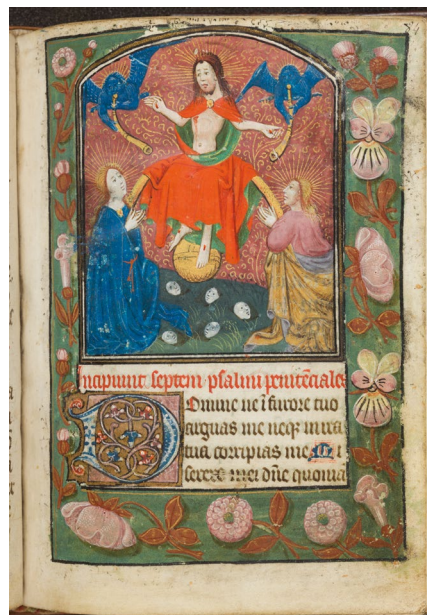 Incipiunt septem psalmi penitẽciales
Domine ne ĩ furore tuo
arguas me neqꝫ in ira
tua corripias me Mi
serere mei dñe quoniã